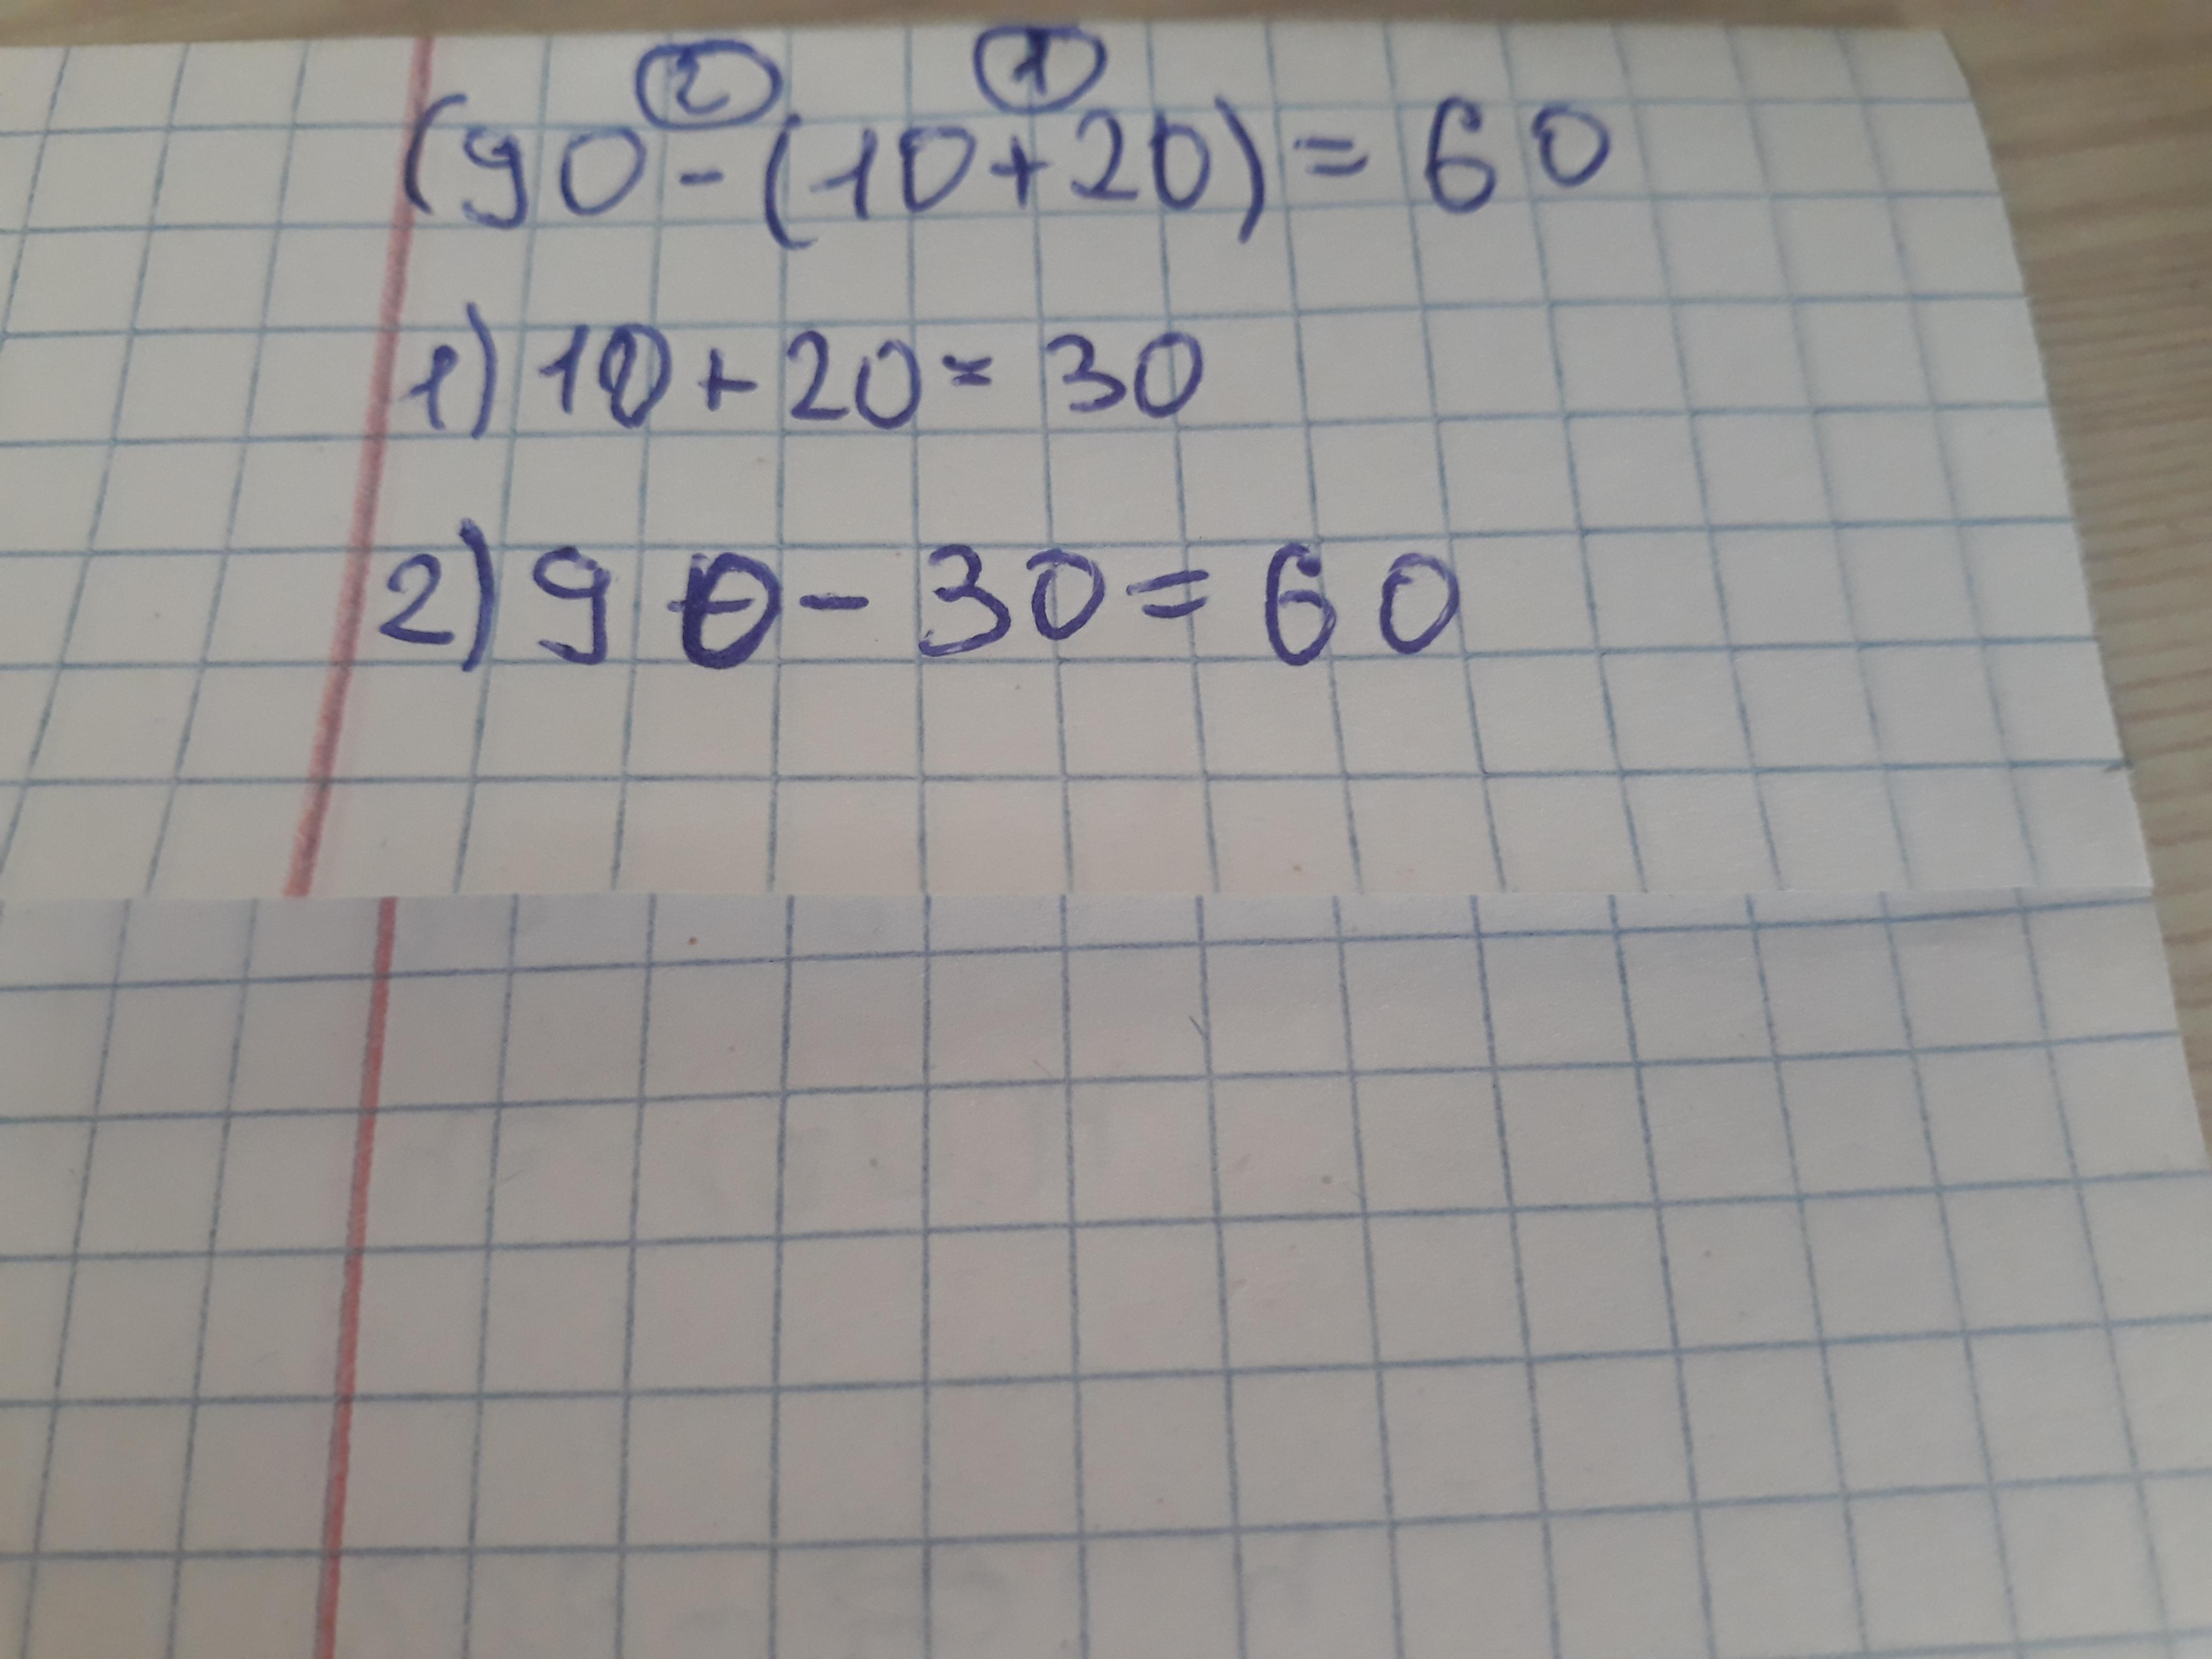 ② ①
(90-(10+20)=60
1) 10+20=30
2) 90-30=60